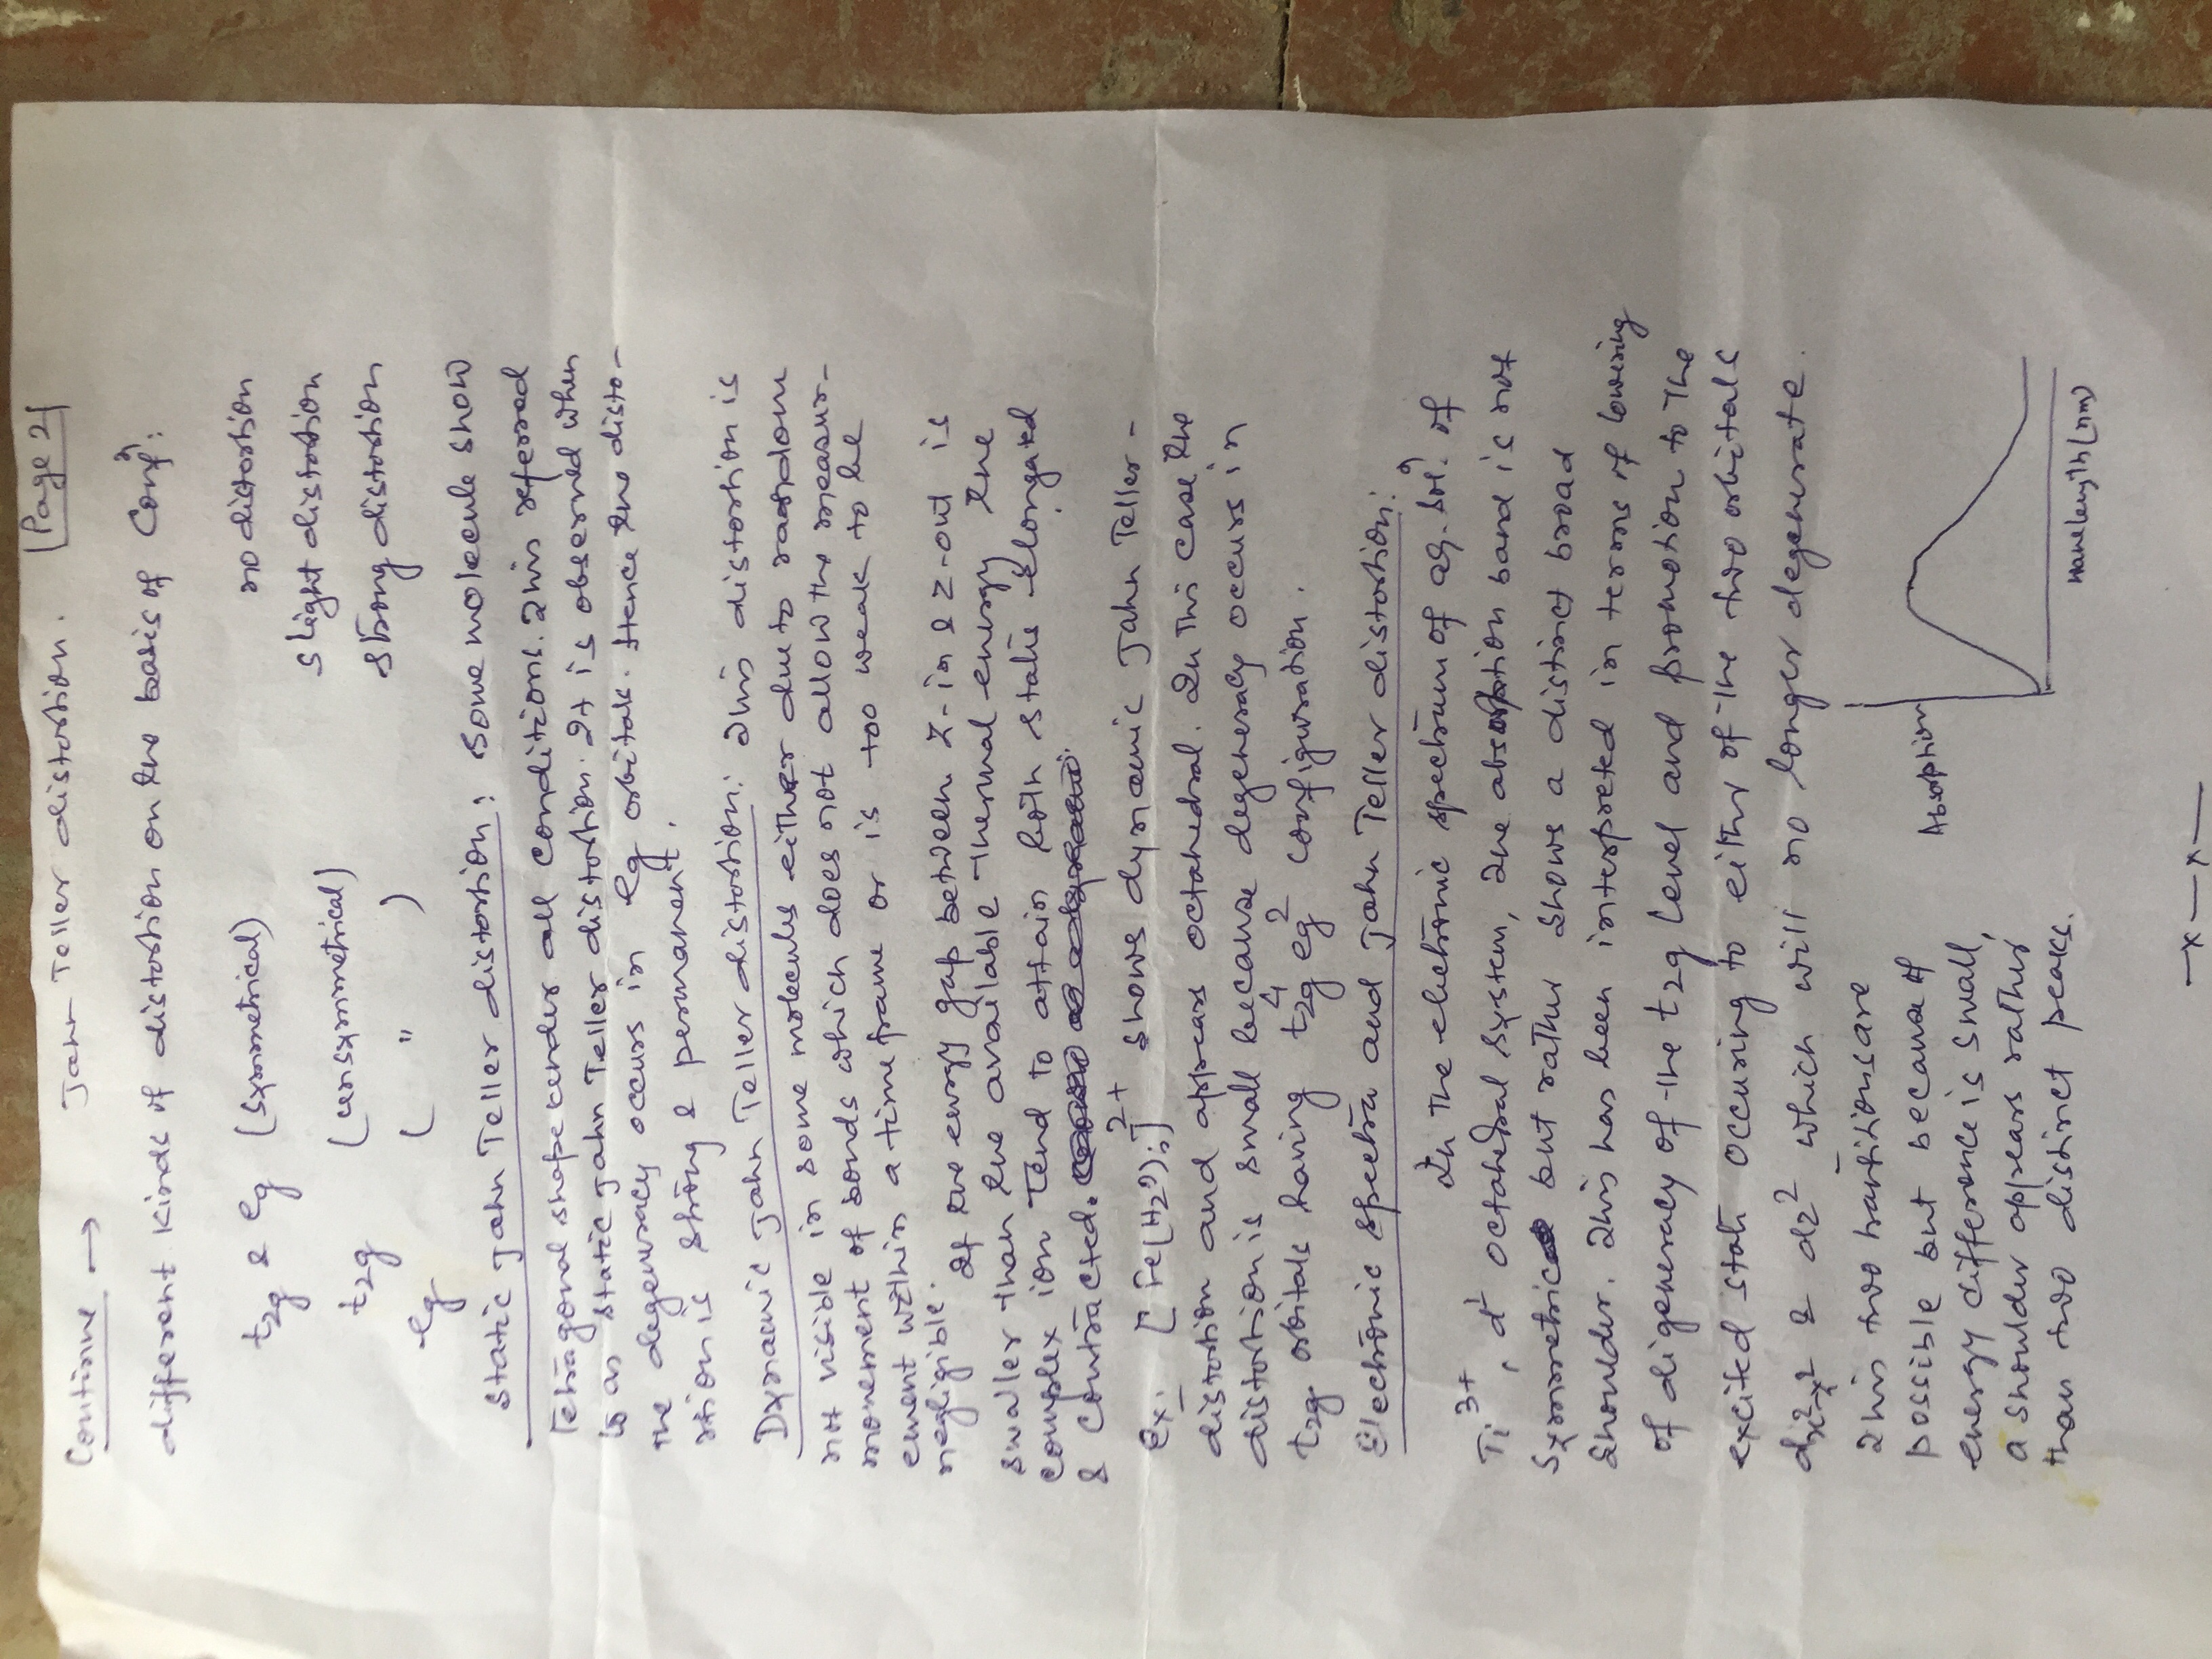 Continue → Jahn Teller distortion. Page 2
different kinds of distortion on the basis of Confn:
t2g & eg (symmetrical) no distortion
t2g (unsymmetrical) slight distortion
eg ( " ) strong distortion
Static Jahn Teller distortion: Some molecule show
Tetragonal shape under all conditions. This referred
to as static Jahn Teller distortion. It is observed when
the degeneracy occurs in eg orbitals. Hence the disto-
rtion is strong & permanent.
Dynamic Jahn Teller distortion: This distortion is
not visible in some molecules either due to random
movement of bonds which does not allow the measur-
ement within a time frame or is too weak to be
negligible.
If the energy gap between z-in & z-out is
smaller than the available thermal energy the
complex ion tend to attain both state elongated
& contracted.
Ex. [Fe(H2O)6]2+ shows dynamic Jahn Teller-
distortion and appears octahedral. In this case the
distortion is small because degeneracy occurs in
t2g orbitals having t2g4 eg2 configuration.
Electronic spectra and Jahn Teller distortion:
In the electronic spectrum of aq. soln. of
Ti3+, d1 octahedral system, the absorption band is not
symmetric but rather shows a distinct broad
shoulder. This has been interpreted in terms of lowering
of digeneracy of the t2g level and promotion to the
excited state occuring to either of the two orbitals
dx2-y2 & dz2 which will no longer degenerate.
This two tranitions are
possible but because of
energy difference is small,
a shoulder appears rather
than two distinct peaks.
Absorption
Wavelength (nm)
—x—x—